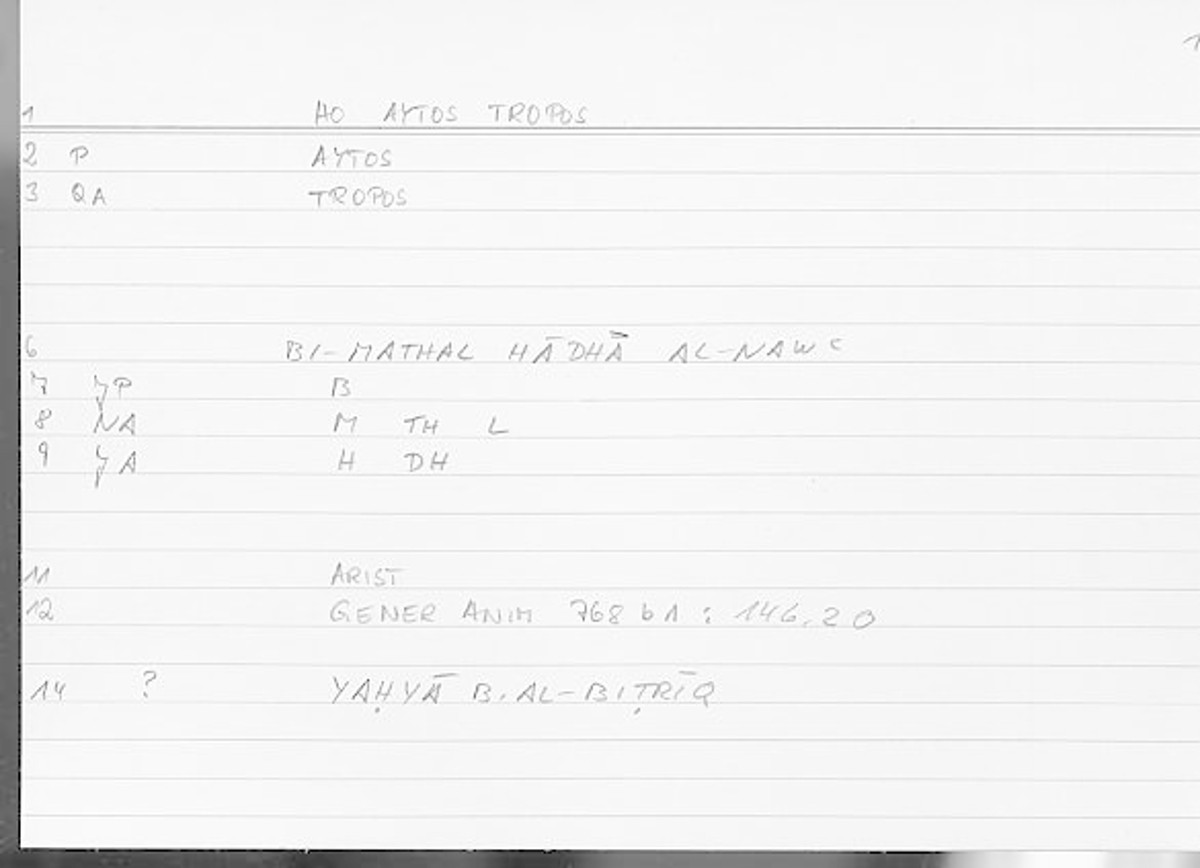 1
1 HO AYTOS TROPOS
2 P AYTOS
3 QA TROPOS
6 BI-MATHAL HĀDHĀ AL-NAWʿ
7 JP B
8 NA M TH L
9 JA H DH
11 ARIST
12 GENER ANIM 768 b 1 : 146, 20
14 ? YAḤYĀ B. AL-BIṬRĪQ